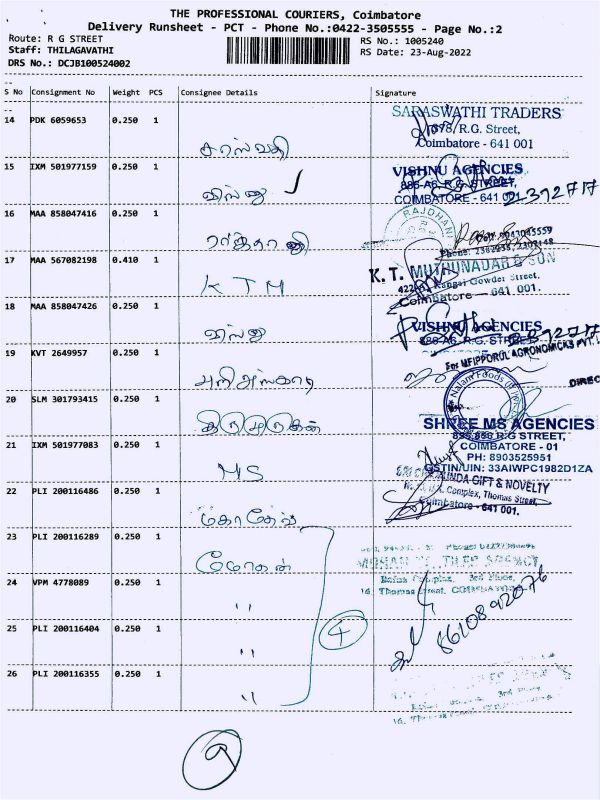 THE PROFESSIONAL COURIERS, Coimbatore
Delivery Runsheet - PCT - Phone No.:0422-3505555 - Page No.:2
Route: R G STREET
RS No.: 1005240
Staff: THILAGAVATHI
RS Date: 23-Aug-2022
DRS No.: DCJB100524002
S No Consignment No Weight PCS Consignee Details Signature
14 PDK 6059653 0.250 1 சரஸ்வதி
SARASWATHI TRADERS
R.G. Street,
Coimbatore - 641 001
15 IXM 501977159 0.250 1 விஸ்ணு
VISHNU AGENCIES
886-A6, R.G. STREET,
COIMBATORE - 641 001
16 MAA 858047416 0.250 1
RAJDHANI
17 MAA 567082198 0.410 1 KTM
K. T. MUTHUNADAR & SON
Rangai Gowder Street,
Coimbatore - 641 001.
18 MAA 858047426 0.250 1 விஸ்ணு
VISHNU AGENCIES
886-A6, R.G. STREET,
19 KVT 2649957 0.250 1
For MEIPPORUL AGRONOMICKS PVT.
DIREC
20 SLM 301793415 0.250 1 திருமுருகன்
Nalam Foods
SHREE MS AGENCIES
R.G STREET,
COIMBATORE - 01
21 IXM 501977083 0.250 1 MS
PH: 8903525951
GSTIN/UIN: 33AIWPC1982D1ZA
22 PLI 200116486 0.250 1
GIFT & NOVELTY
Complex, Thomas Street,
Coimbatore - 641 001.
23 PLI 200116289 0.250 1 மோகன்
MOHAN AGENCY
3rd Floor,
16, Thomas Street, COIMBATORE
24 VPM 4778089 0.250 1 ,,
8610892076
25 PLI 200116404 0.250 1 ,,
4
26 PLI 200116355 0.250 1 ,,
3rd Floor
16, Thomas
9